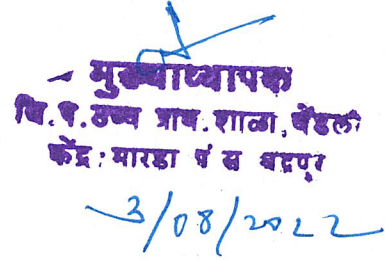 मुख्याध्यापक
जि.प.उच्च प्राथ.शाळा, बेंडली
केंद्र: मारडा पं स चंद्रपुर
3/08/2022